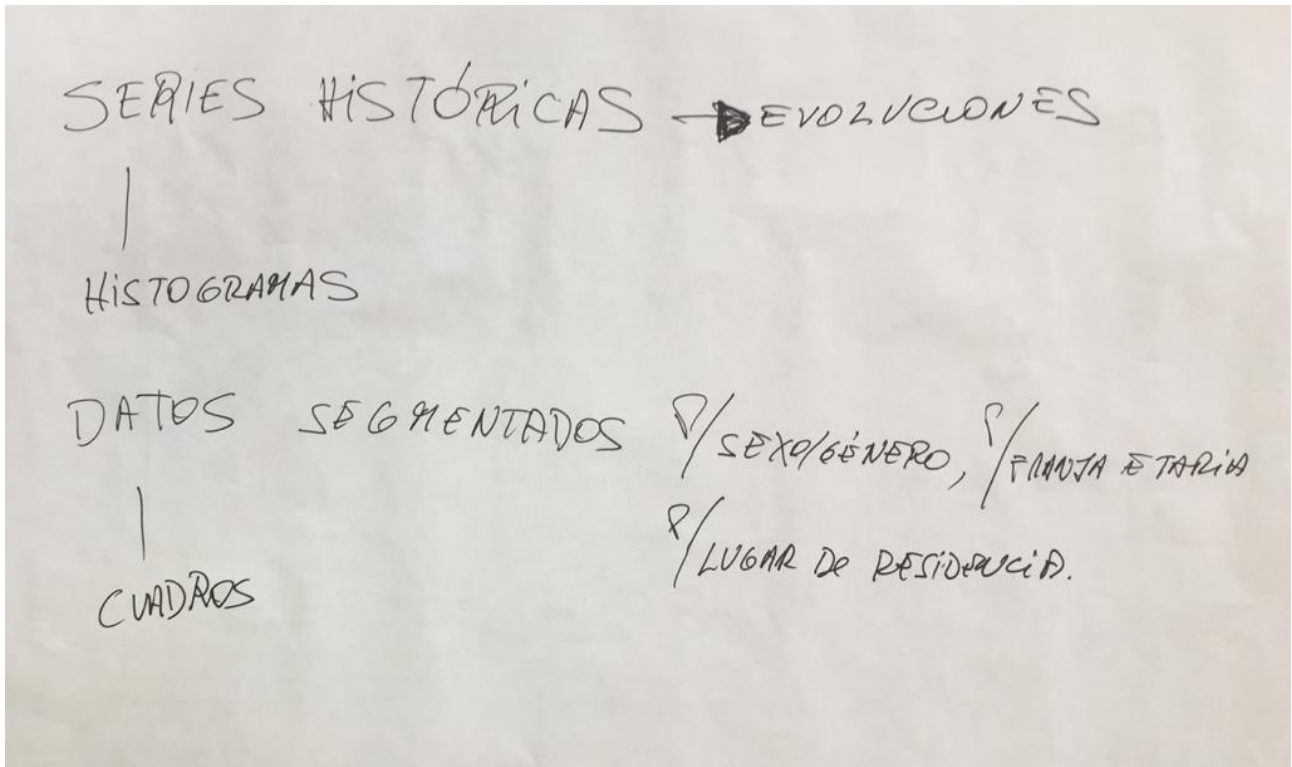 SERIES HISTÓRICAS → EVOLUCIONES
HISTOGRAMAS
DATOS SEGMENTADOS P/SEXO/GÉNERO, P/FRANJA ETARIA
P/LUGAR DE RESIDENCIA.
CUADROS